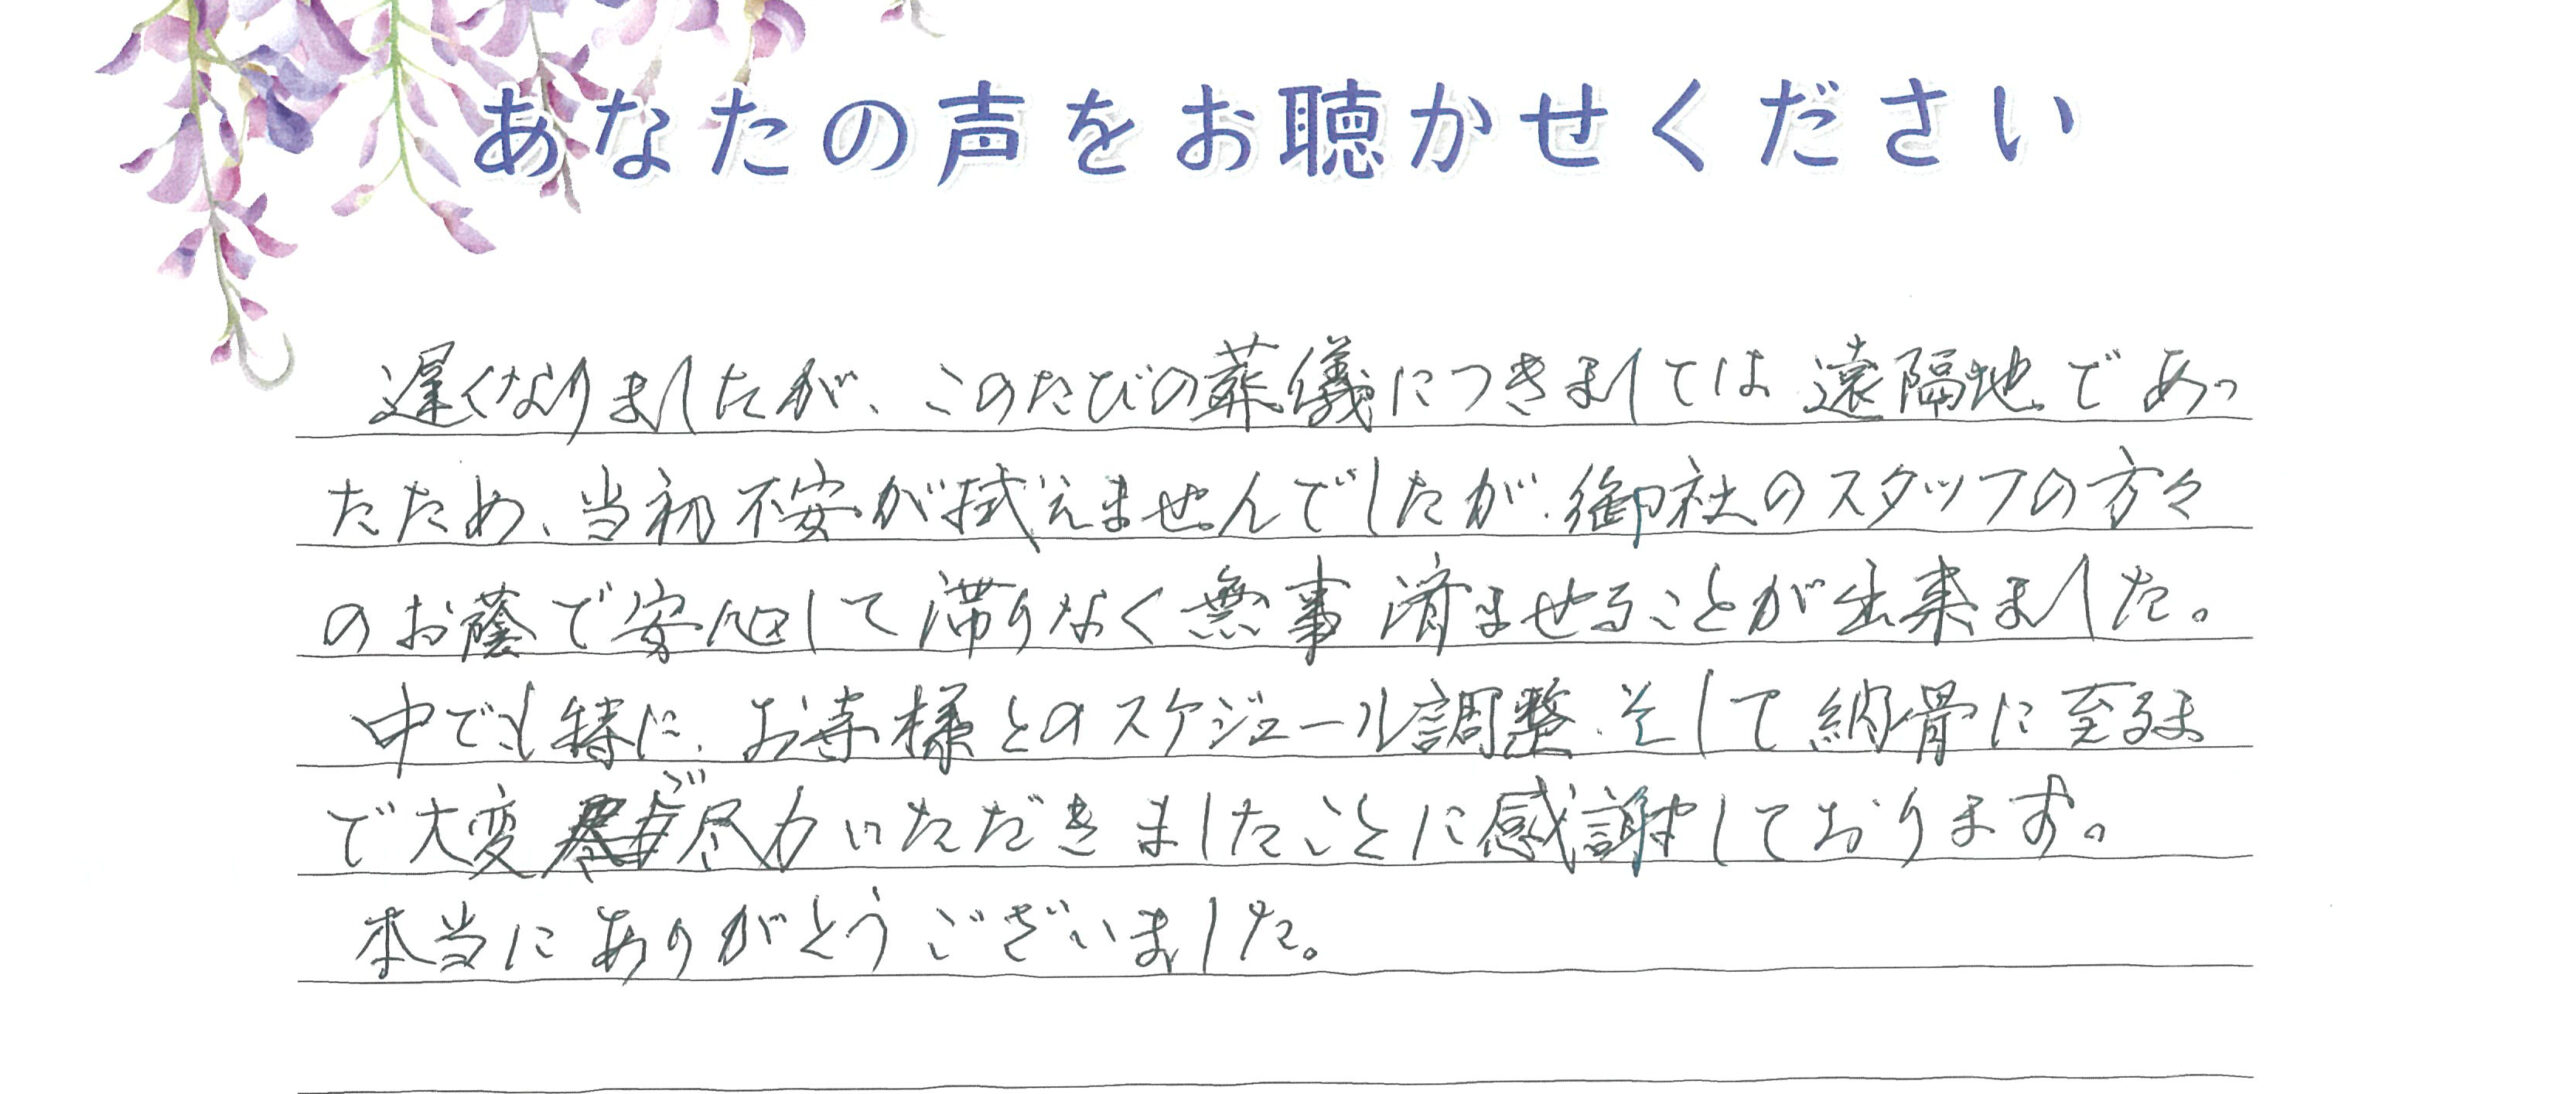 あなたの声をお聴かせください
遅くなりましたが、このたびの葬儀につきましては遠隔地であっ
たため、当初不安が拭えませんでしたが、御社のスタッフの方々
のお蔭で安心して滞りなく無事済ませることが出来ました。
中でも特に、お寺様とのスケジュール調整、そして納骨に至るま
で大変ご尽力いただきましたことに感謝しております。
本当にありがとうございました。